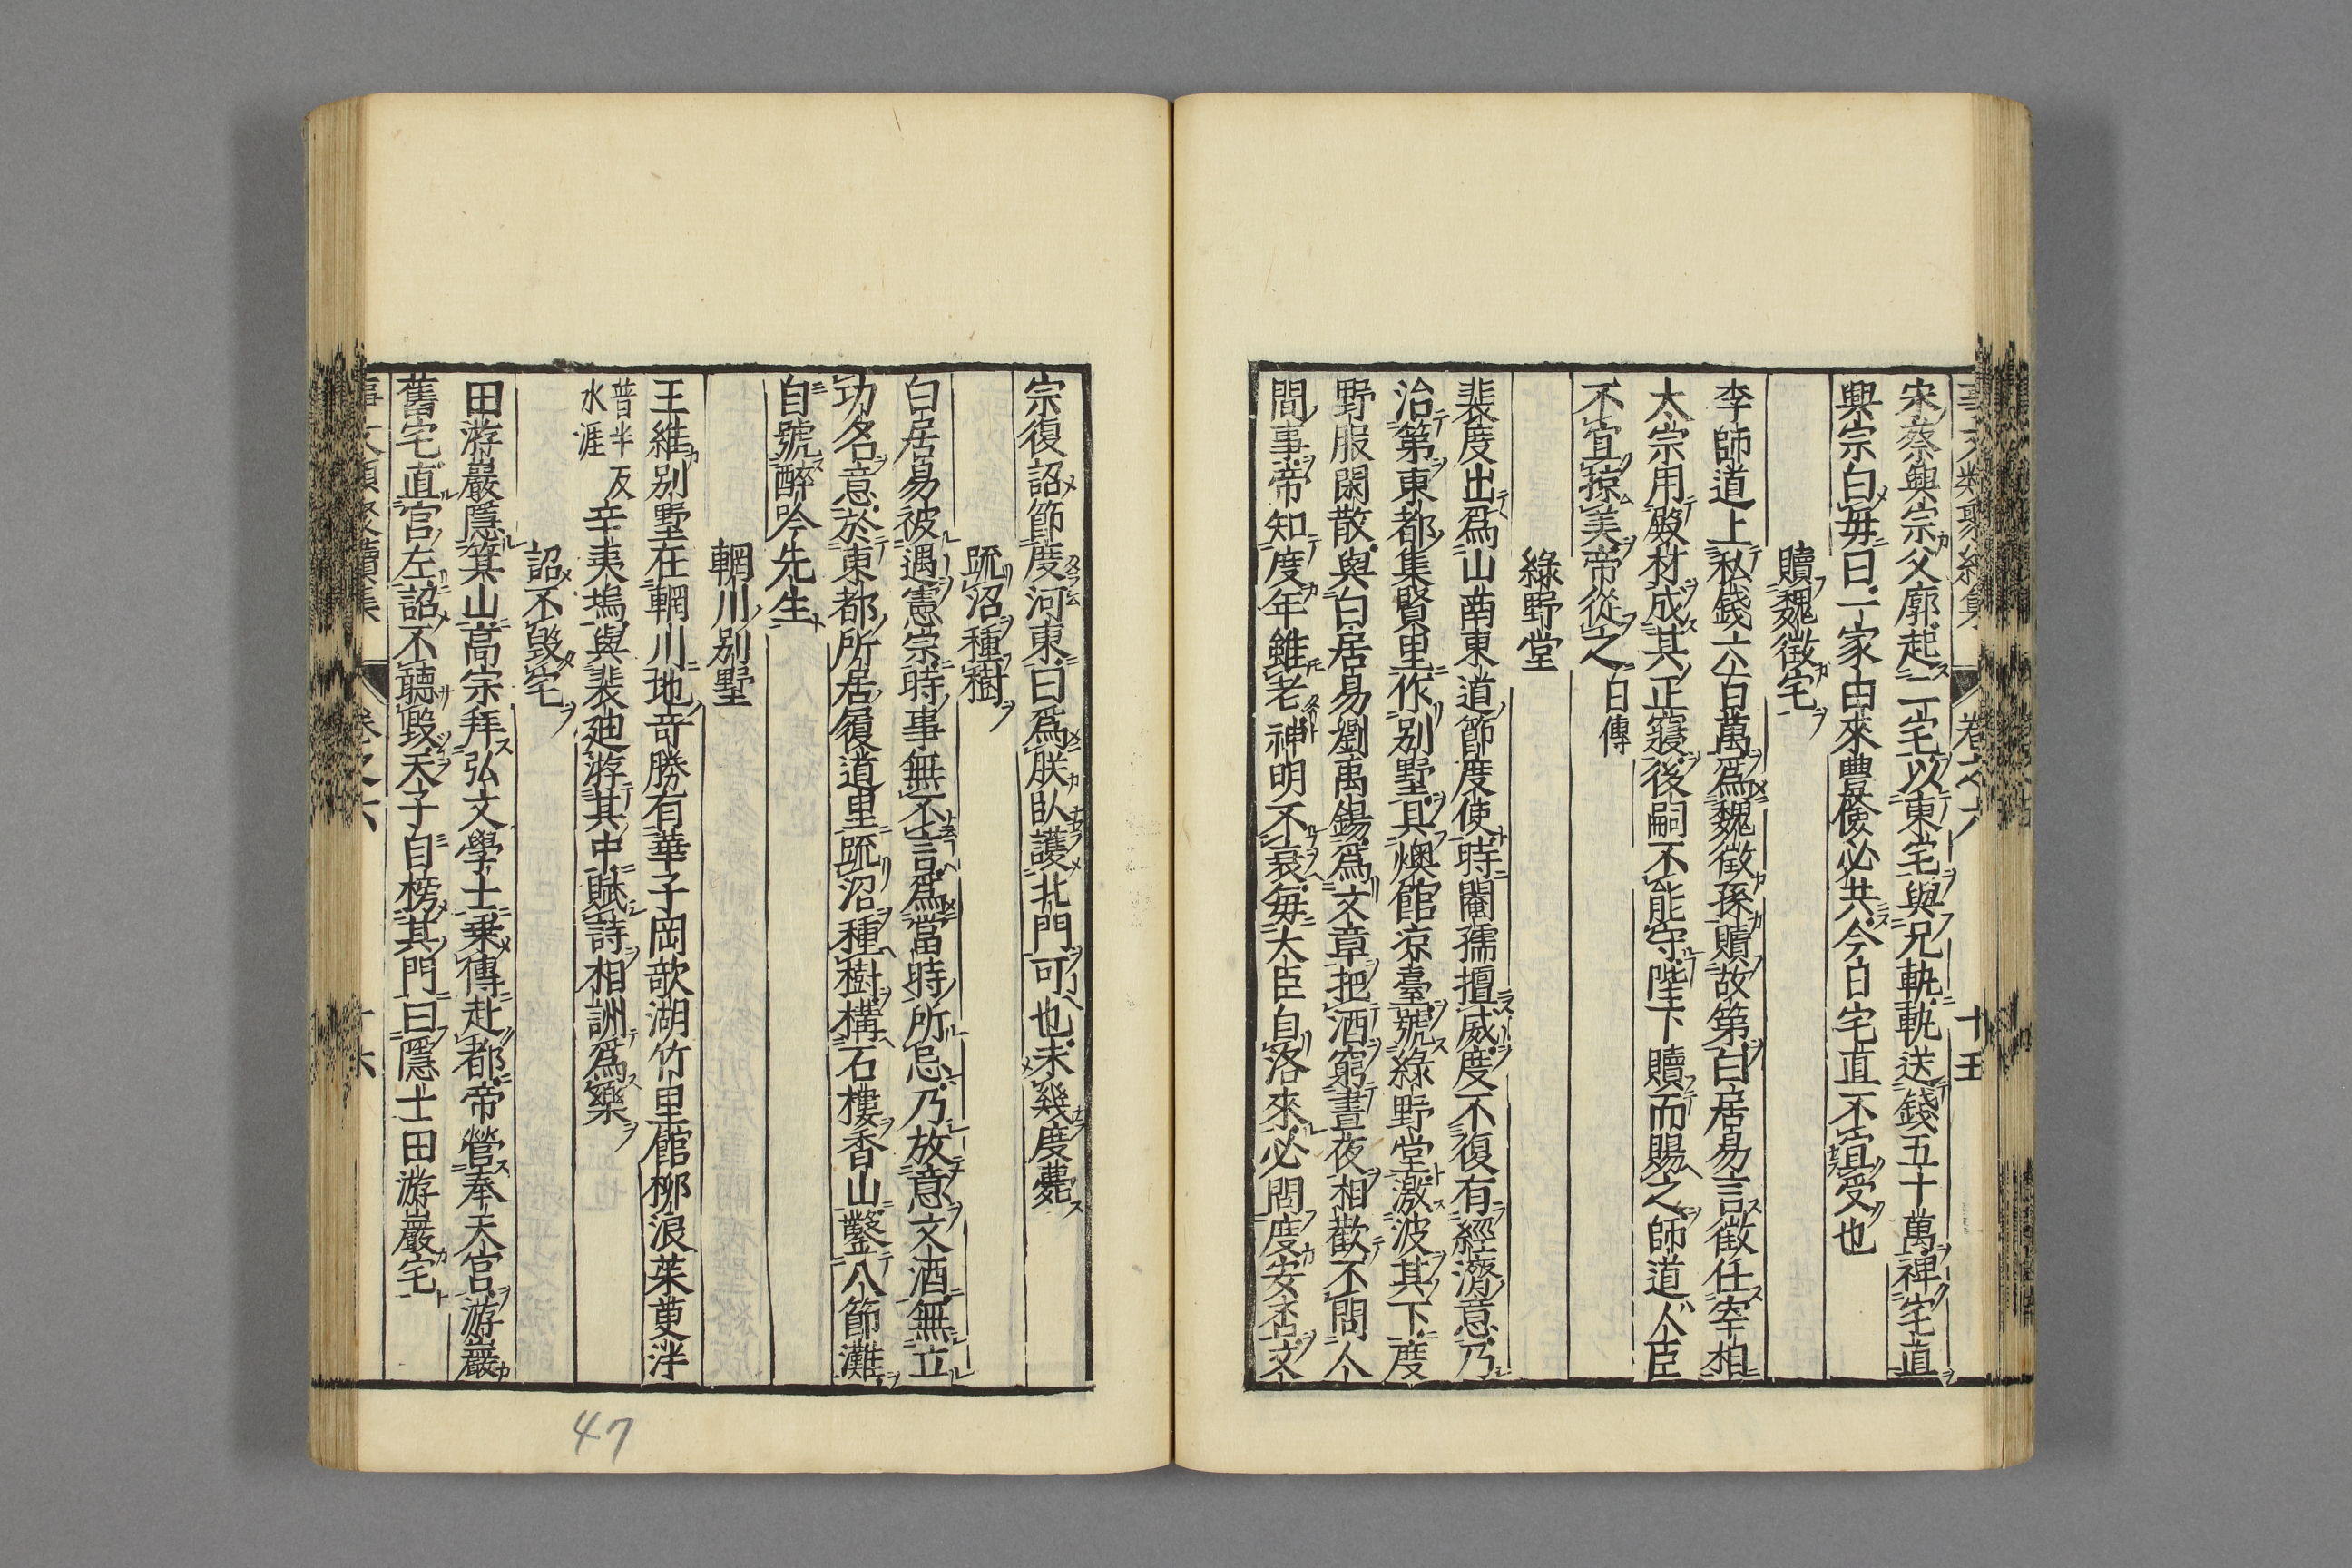 事文類聚續集 卷之六 十五
宋蔡興宗父廓起二宅以東宅與兄軌軌送錢五十萬裨宅直
興宗白毋曰一家由來豊儉必共今日宅直不宜受也
贖魏徵宅
李師道上私錢六百萬爲魏徵孫贖故第白居易言徵任宰相
太宗用殿材成其正寢後嗣不能守陛下贖而賜之師道人臣
不宜掠美帝從之 白傳
綠野堂
裴度出爲山南東道節度使時閹孺擅威度不復有經濟意乃
治第東都集賢里作别墅其燠館凉臺號綠野堂激波其下度
野服閑散與白居易劉禹錫爲文章把酒窮晝夜相歡不問人
間事帝知度年雖老神明不衰毎大臣自洛來必問度安否文
宗復詔節度河東曰爲朕臥護北門可也未幾度薨
䟽沼種樹
白居易被遇憲宗時事無不言爲當時所忌乃放意文酒無立
功名意於東都所居履道里䟽沼種樹構石樓香山鑿八節灘
自號醉吟先生
輞川别墅
王維别墅在輞川地奇勝有華子岡欹湖竹里館柳浪茱萸泮
普半反
水涯
辛夷塢與裴迪游其中賦詩相詶爲樂
詔不毀宅
田游巖隱箕山高宗拜弘文學士乗傳赴都帝營奉天宮游巖
舊宅直宮左詔不聽毀天子自榜其門曰隱士田游巖宅
事文類聚續集 卷之六 十六
47